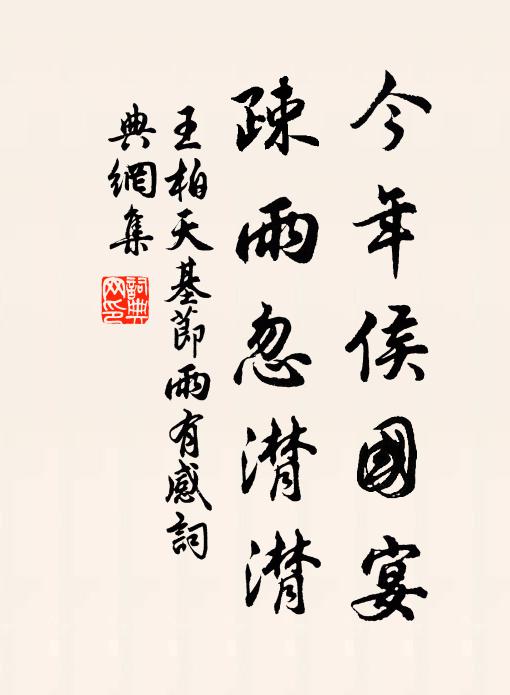 今年侯國宴
疎雨忽潸潸
王柏天基節雨有感詞
典網集
詞典网印